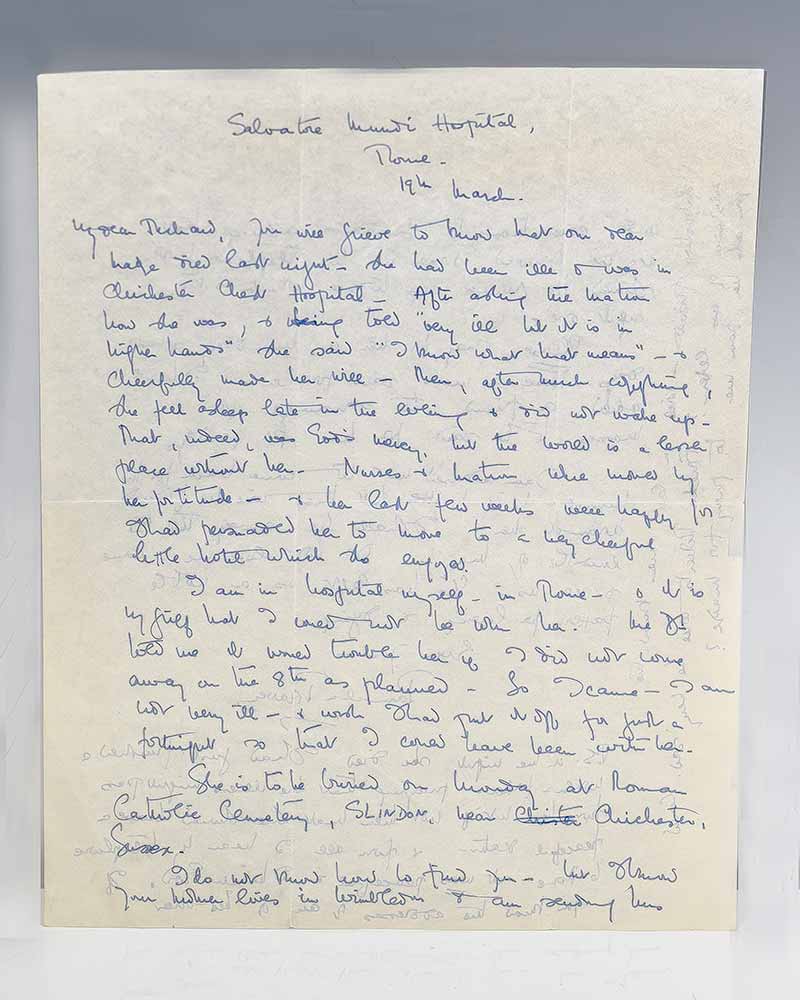 Salvatore Mundi Hospital,
Rome.
19th March.
My dear Richard, You will grieve to know that our dear
died last night – she had been ill & was in
Chichester Chest Hospital – After asking the Matron
how she was, & being told "very ill but it is in
higher hands" she said "I know what that means" – &
cheerfully made her will – Then, after much coughing,
she fell asleep late in the evening & did not wake up –
That, indeed, was God's mercy, but the world is a lesser
place without her – Nurses & Matron were moved by
her fortitude – & her last few weeks were happy
I had persuaded her to move to a very cheerful
little hotel which she enjoyed.
I am in hospital myself – in Rome – & it is
my grief that I could not be with her. The Dr
told me it would trouble her if I did not come
away on the 8th as planned – So I came – I am
not very ill – & wish I had put it off for just a
fortnight so that I could have been with her.
She is to be buried on Monday at Roman
Catholic Cemetery, SLINDON, near Chichester,
Sussex.
I do not know how to find you – but I know
your mother lives in Wimbledon & I am sending this